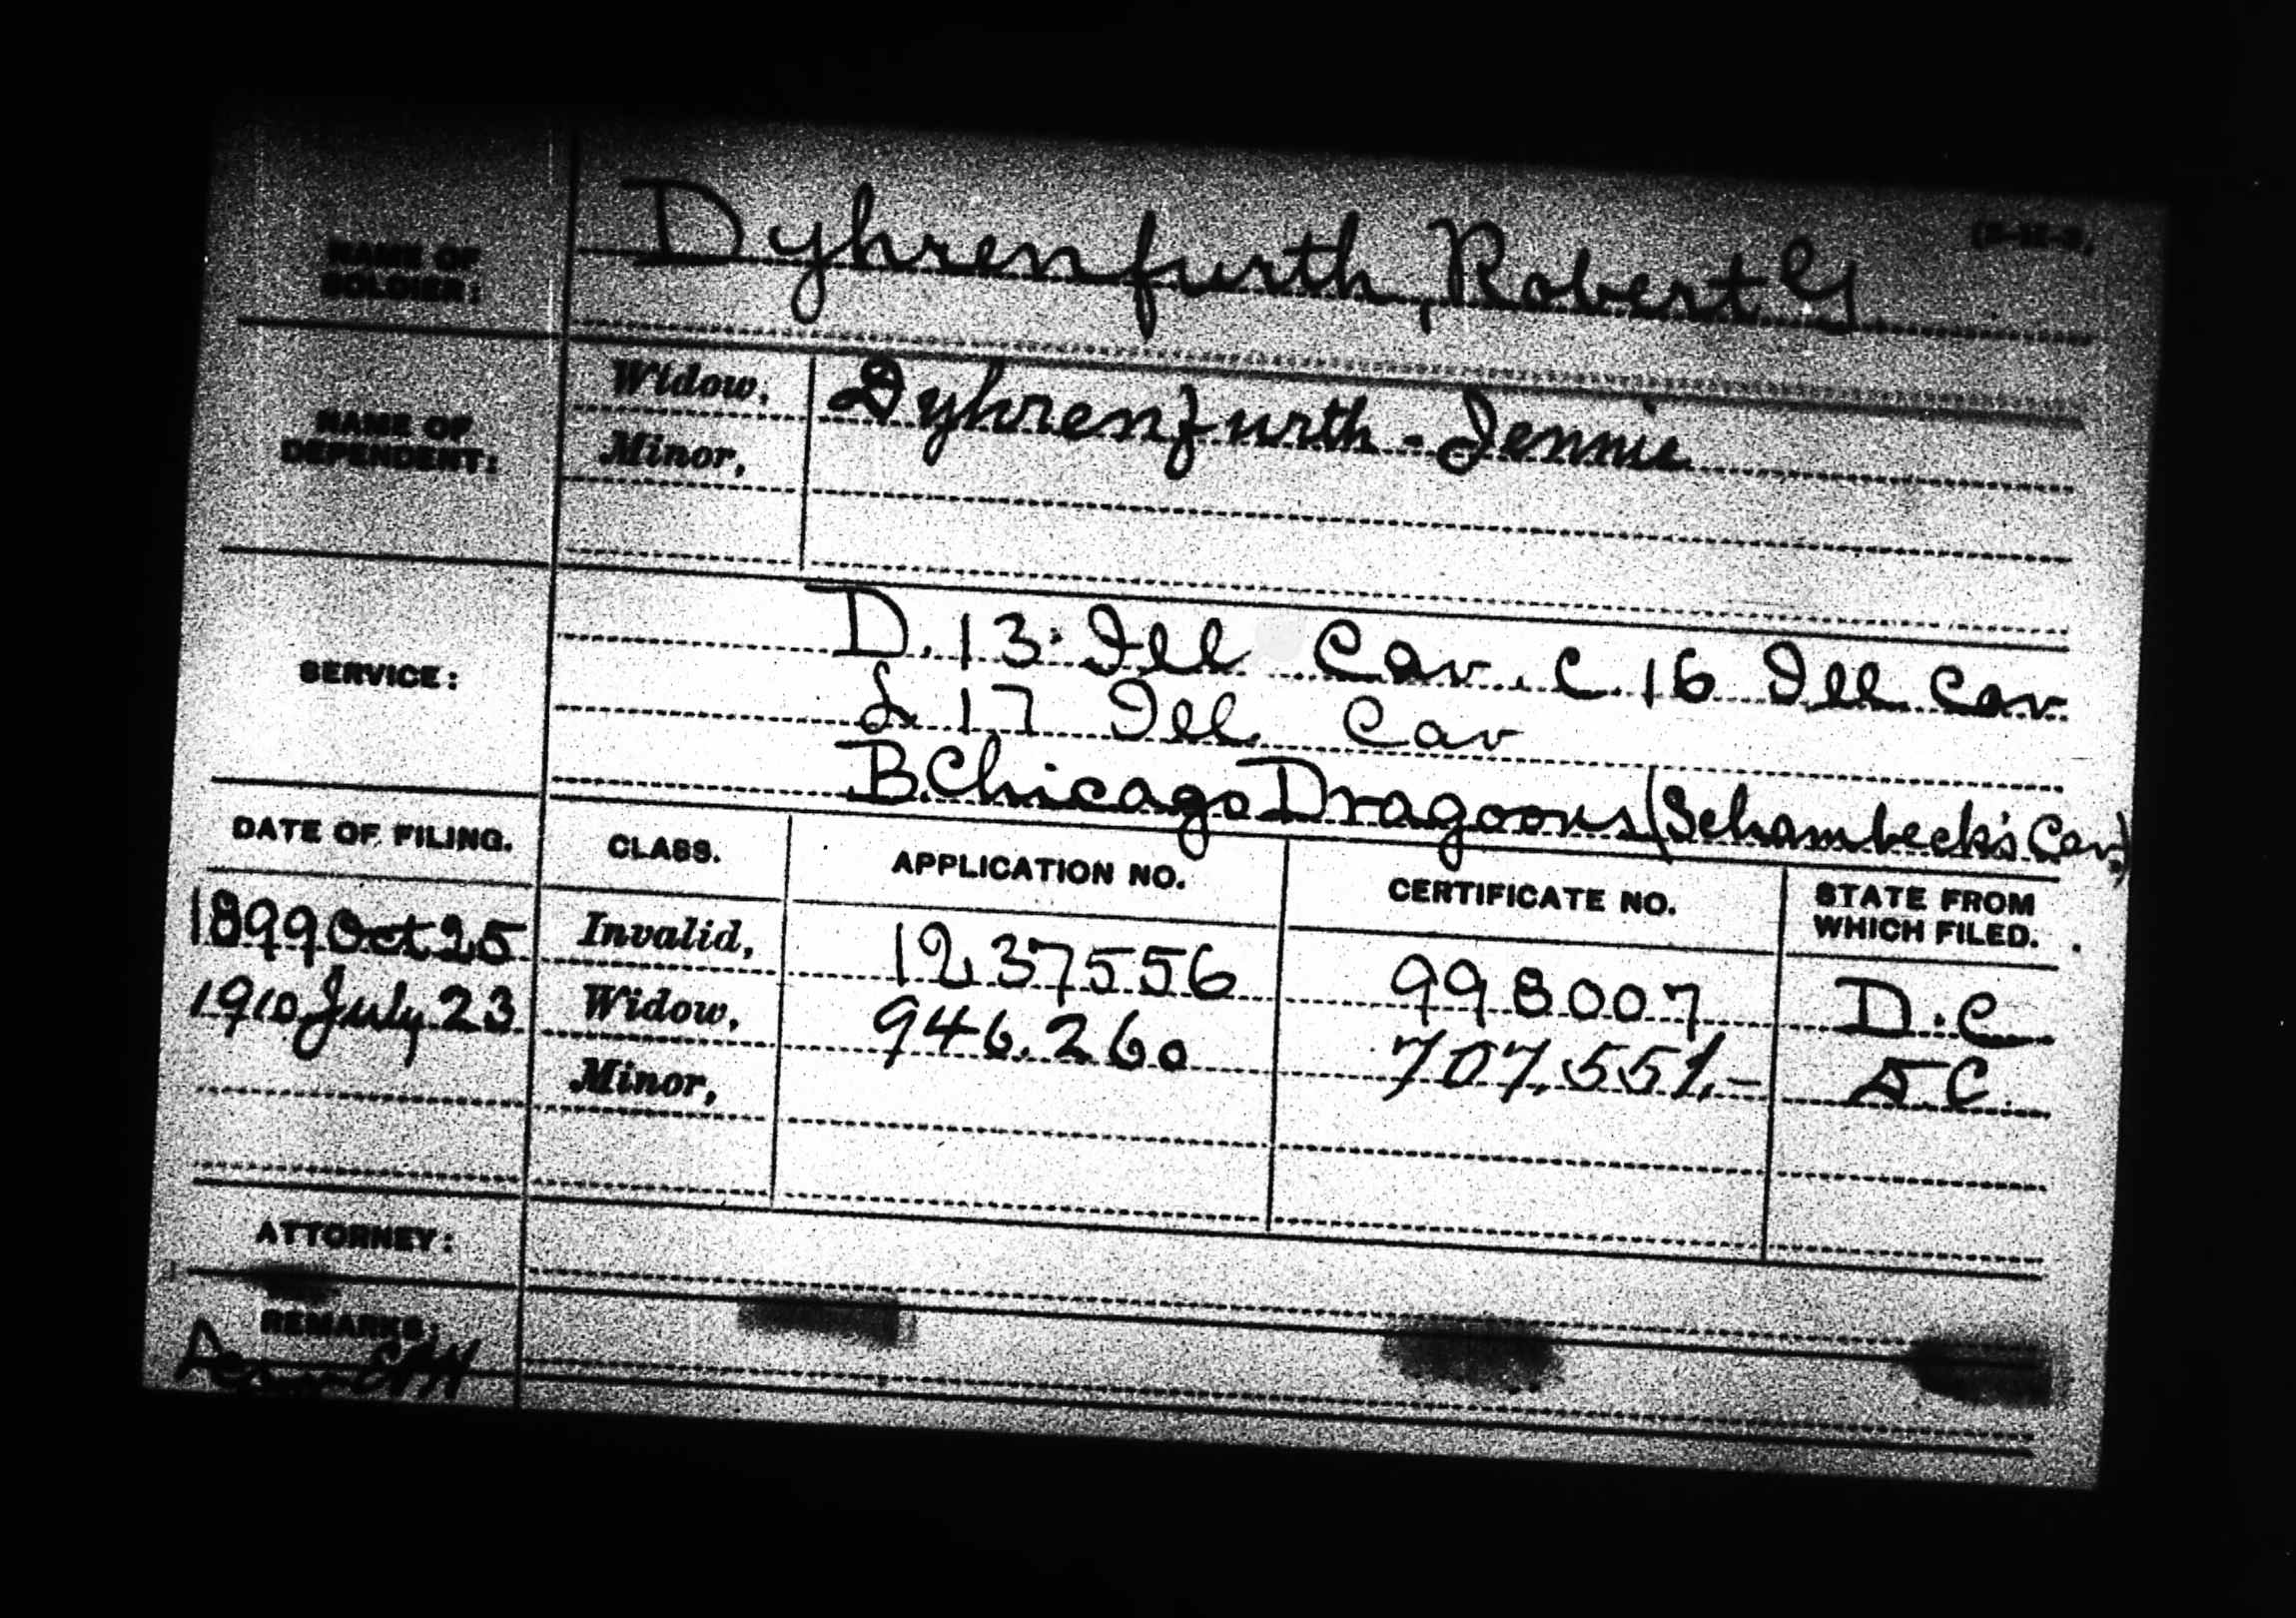 Dyhrenfurth, Robert G
NAME OF
SOLDIER:
Widow, Dyhrenfurth - Jennie
NAME OF
DEPENDENT:
Minor,
D. 13. Ill Cav. C. 16 Ill Cav
SERVICE:
L 17 Ill Cav
B. Chicago Dragoons (Schambeck's Cav.)
DATE OF FILING. CLASS. APPLICATION NO. CERTIFICATE NO. STATE FROM
WHICH FILED.
1899 Oct 25 Invalid, 1237556 998007 D.C
1910 July 23 Widow, 946.260 707,551.- D.C.
Minor,
ATTORNEY:
REMARKS: